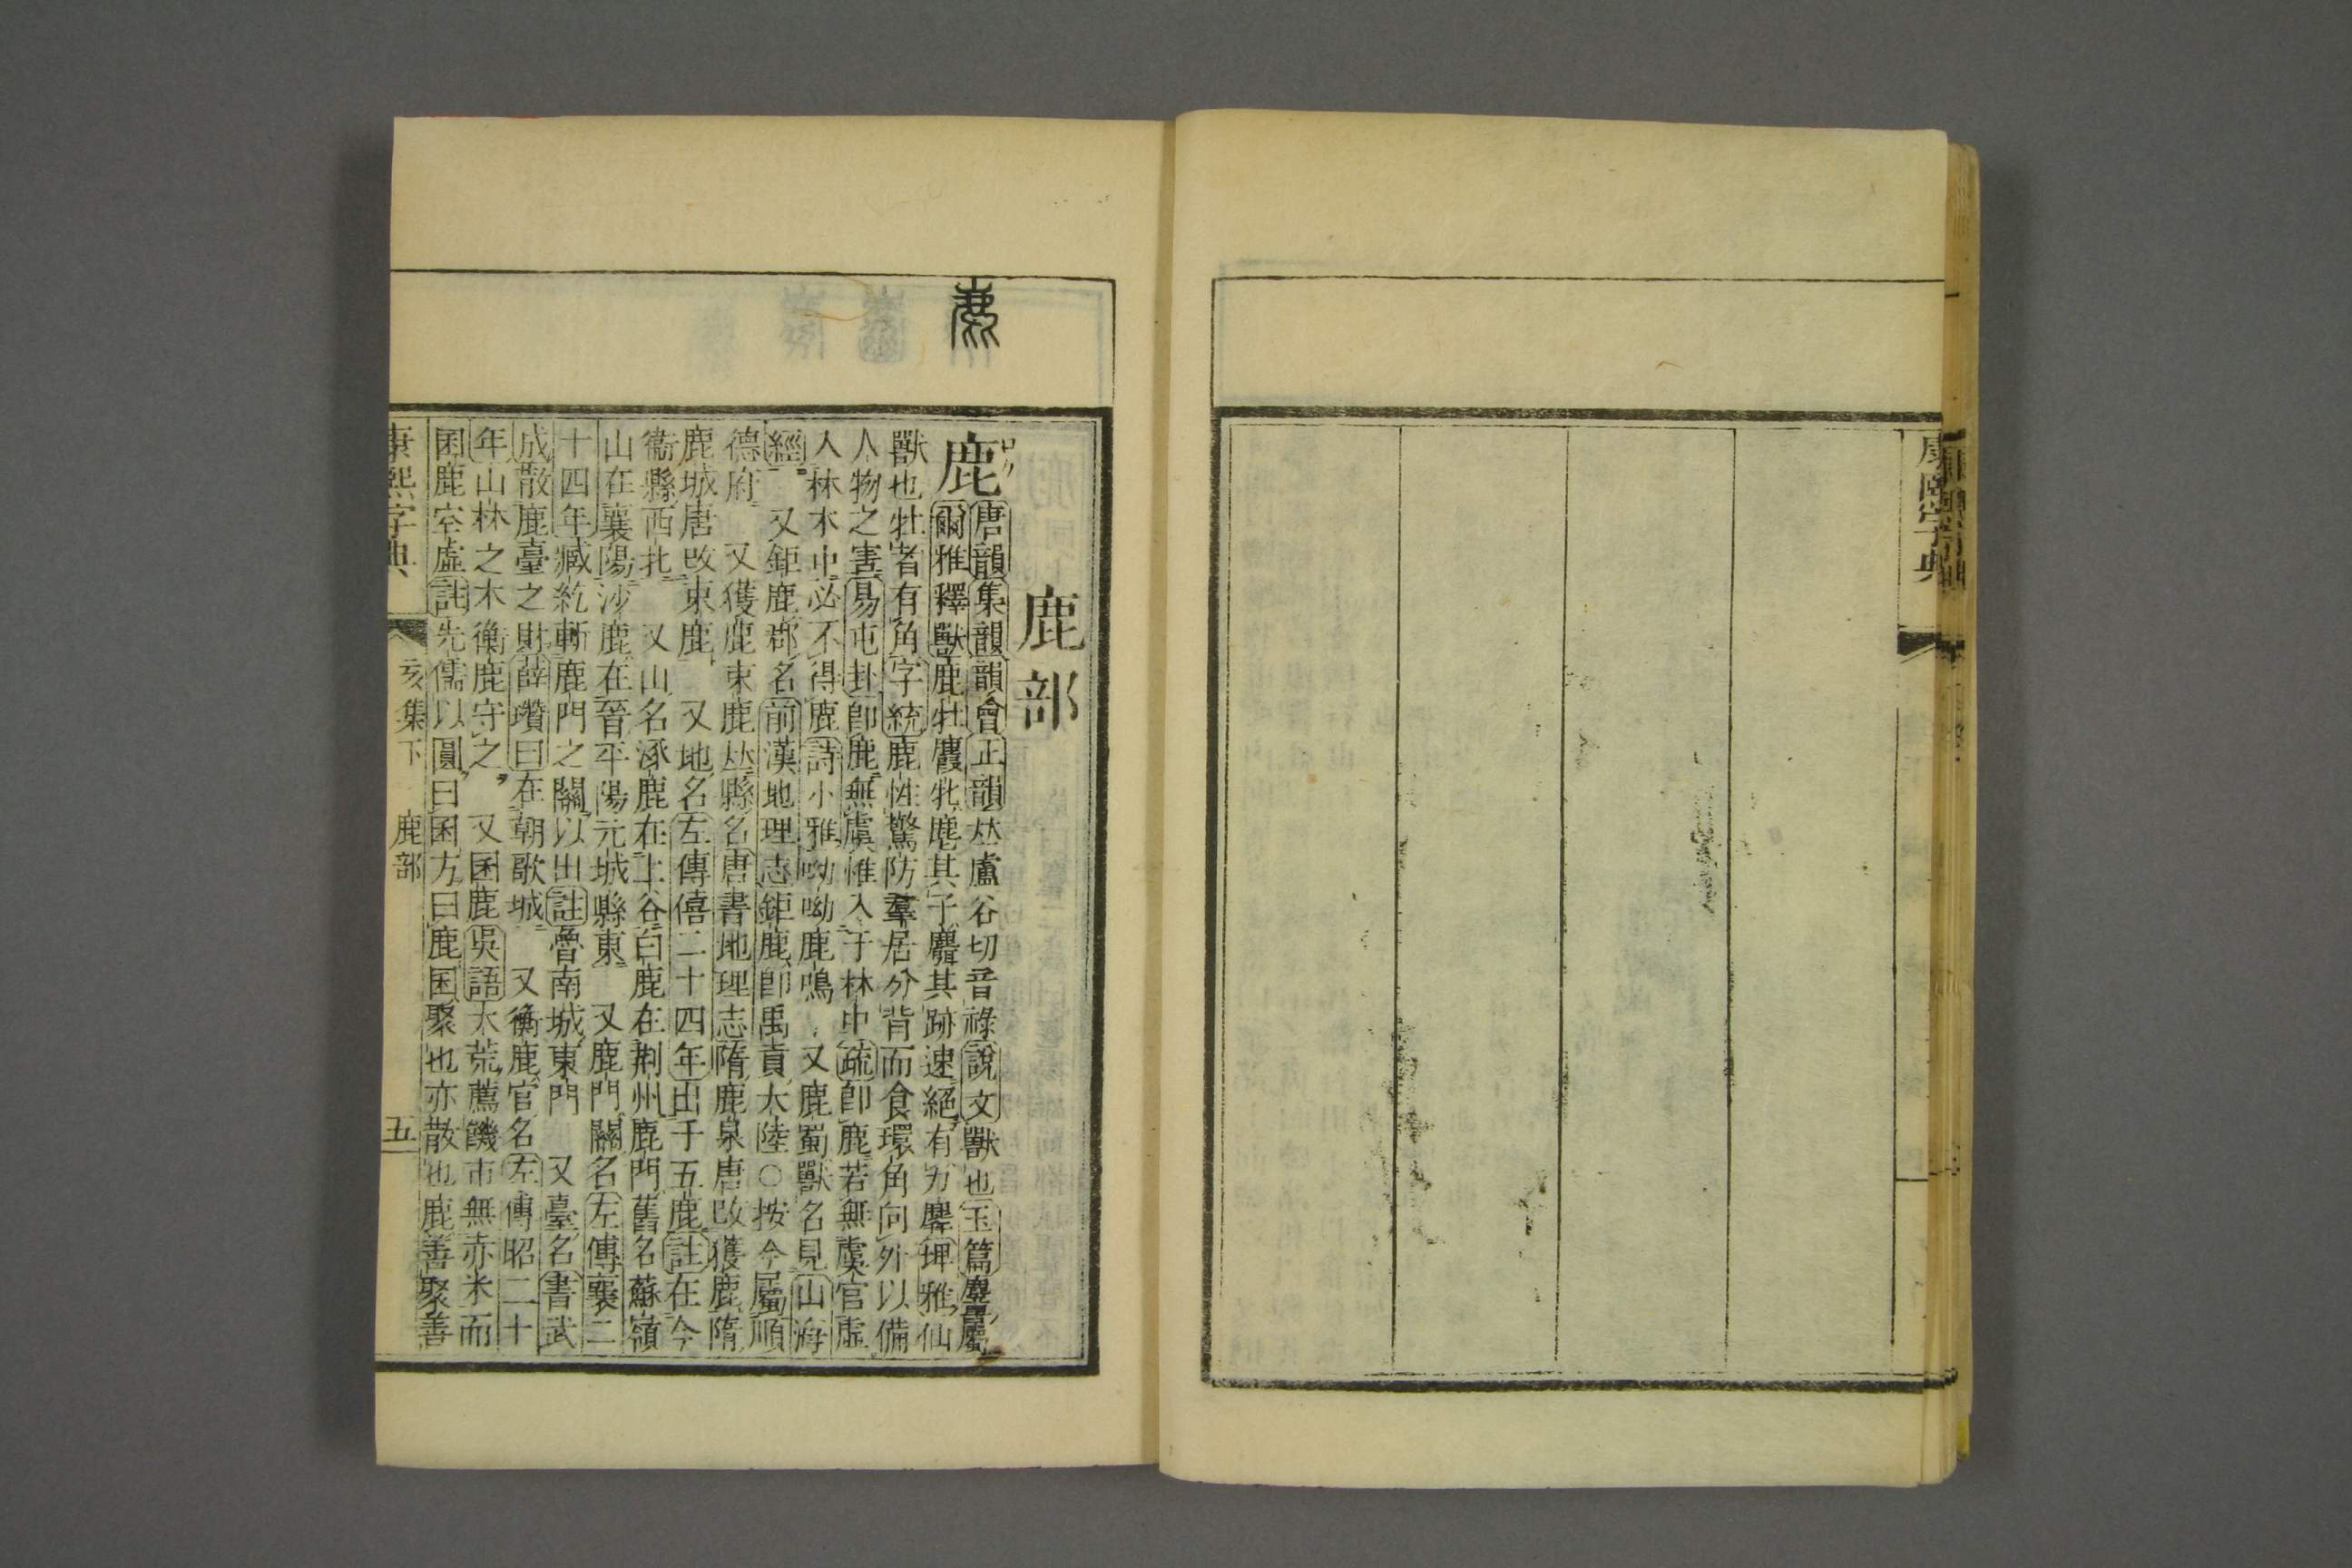 康熙字典
鹿
鹿部
鹿唐韻集韻韻會正韻𠀤盧谷切音祿說文獸也玉篇麞屬
爾雅釋獸鹿牡麚牝麀其子麛其跡速絕有力麉埤雅仙
獸也牡者有角字統鹿性驚防羣居分背而食環角向外以備
人物之害易屯卦卽鹿無虞惟入于林中疏卽鹿若無虞官虛
入林木中必不得鹿詩小雅呦呦鹿鳴 又鹿蜀獸名見山海
經 又鉅鹿郡名前漢地理志鉅鹿卽禹貢大陸○按今屬順
德府 又獲鹿束鹿𠀤縣名唐書地理志隋鹿泉唐改獲鹿隋
鹿城唐改束鹿 又地名左傳僖二十四年出于五鹿註在今
衞縣西北 又山名涿鹿在上谷白鹿在荆州鹿門舊名蘇嶺
山在襄陽沙鹿在晉平陽元城縣東 又鹿門關名左傳襄二
十四年臧紇斬鹿門之關以出註魯南城東門 又臺名書武
成散鹿臺之財薛瓚曰在朝歌城 又衡鹿官名左傳昭二十
年山林之木衡鹿守之 又囷鹿吳語大荒薦饑市無赤米而
囷鹿空虛註先儒以圓曰囷方曰鹿囷聚也亦散也鹿善聚善
康熙字典 亥集下 鹿部 五